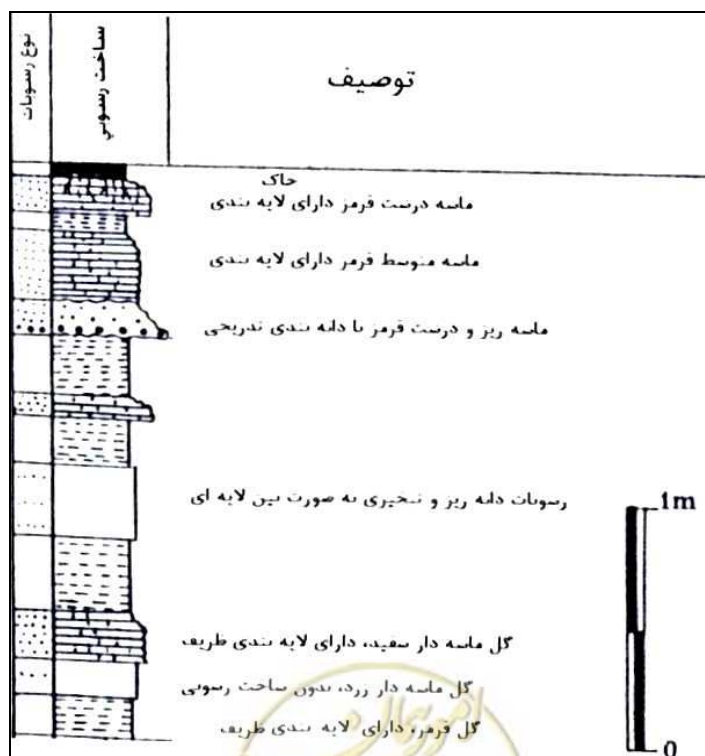 نوع رسوبات
ساخت رسوبي
توصیف
خاک
ماسه درست قرمز دارای لایه بندی
ماسه متوسط قرمز دارای لایه بندی
ماسه ریز و درست قرمز با دانه بندی تدریجی
رسوبات دانه ریز و تبخیری به صورت بین لایه ای
1m
گل ماسه دار سفید، دارای لایه بندی ظریف
گل ماسه دار زرد، بدون ساخت رسوبی
گل قرمز، دارای لایه بندی ظریف
0